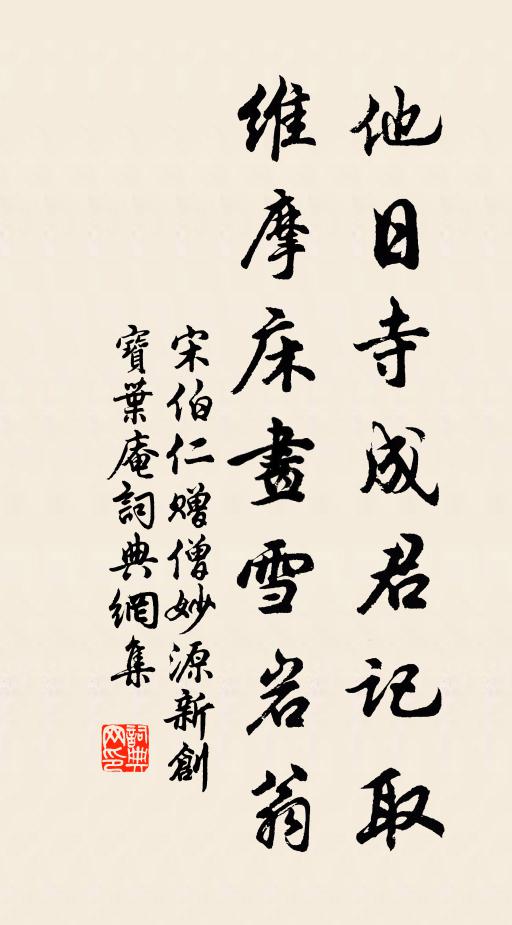 他日寺成君记取
維摩床畫雪岩翁
宋伯仁赠僧妙源新創
寶葉庵詞典網集
詞典网印